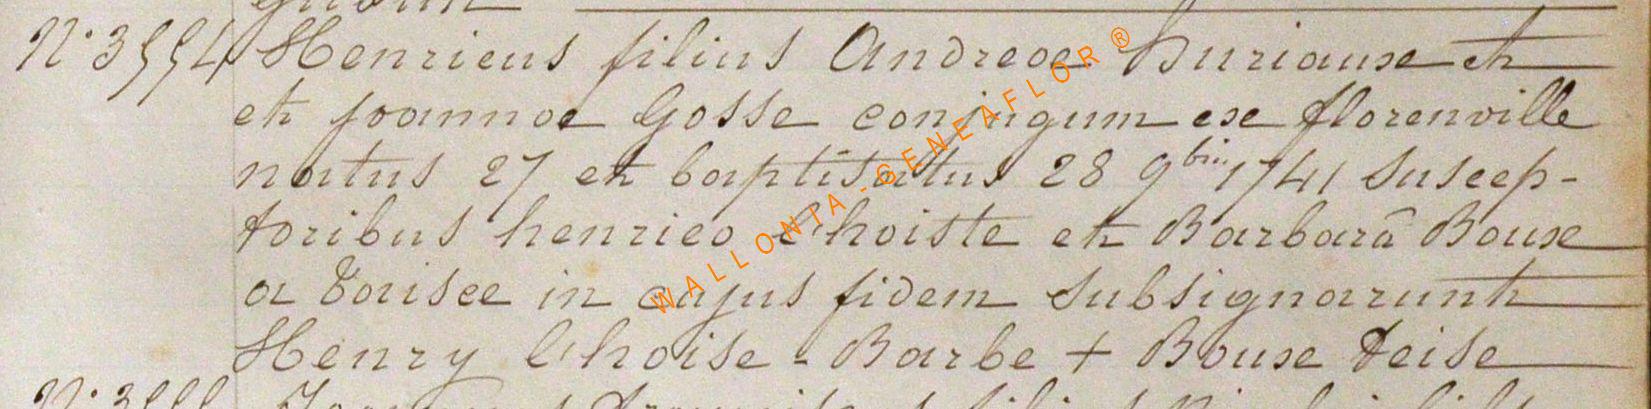 N° 3554 Henricus filius Andreae Huriaux et
et Joannae Gosse conjugum ex florenville
natus 27 et baptisatus 28 9bris 1741 Suscep-
toribus henrico Choiste et Barbarâ Bouxe
a in cujus fidem subsignarunt
Henry Choise - Barbe + Bouxe
WALLONIA-GENEAFLOR®